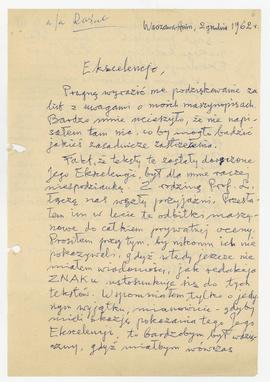 a/a Różne
Warszawa, 2 grudnia 1962
Ekscelencjo,
Pragnę wyrazić me podziękowanie za
list z uwagami o moich maszynopisach.
Bardzo mnie ucieszyło, że nie napi-
sałem tam nic, co by mogło budzić
jakieś zasadnicze zastrzeżenia.
Fakt, że teksty te zostały doręczone
Jego Ekscelencji, był dla mnie raczej
niespodzianką. Z rodziną Prof. L.
łączą nas węzły przyjaźni. Przesła-
łem im w lecie te odbitki maszy-
nowe do całkiem prywatnej oceny.
Prosiłem przy tym, by nikomu ich nie
pokazywali, gdyż wtedy jeszcze nie
miałem wiadomości, jak redakcja
ZNAKu ustosunkuje się do tych
tekstów. Wspomniałem tylko o jedy-
nym wyjątku, mianowicie - gdyby
mieli okazję pokazania tego Jego
Ekscelencji, to bardzo bym był wdzię-
czny, gdyż miałbym wówczas